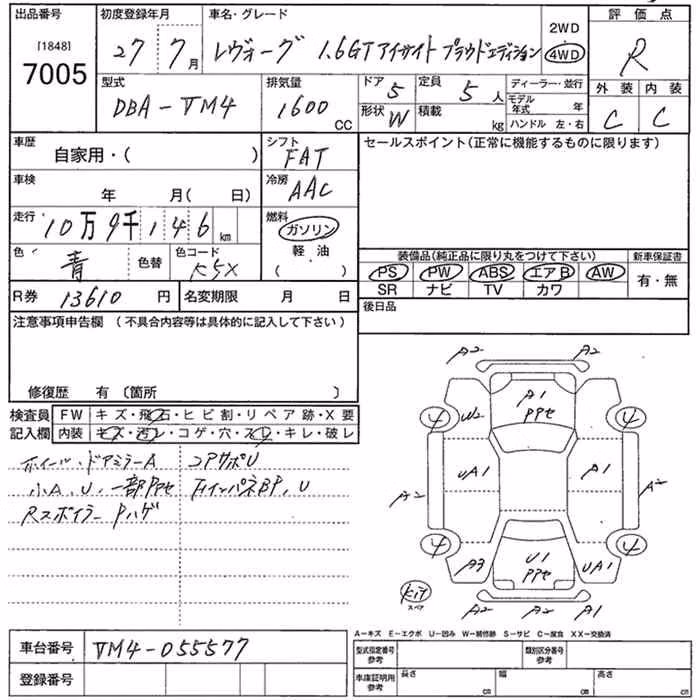 出品番号 初度登録年月 車名・グレード 評価点
[1848]
7005
27 7月 レヴォーグ 1.6GTアイサイト プラウドエディション 2WD 4WD R
型式 排気量 ドア 5 定員 5人 ディーラー・並行 外装 内装
DBA-VM4 1600cc 形状 W 積載 kg モデル年式 年 C C
ハンドル 左・右
車歴 自家用・( ) シフト FAT セールスポイント(正常に機能するものに限ります)
車検 年 月( 日) 冷房 AAC
走行 10万9千146km 燃料 ガソリン
軽・油
( )
色 青 色替 色コード K5X
装備品(純正品に限り丸をつけて下さい) 新車保証書
PS PW ABS エアB AW 有・無
SR ナビ TV カワ
R券 13610円 名変期限 月 日 後日品
注意事項申告欄 (不具合内容等は具体的に記入して下さい)
修復歴 有 〔箇所 〕
検査員 FW キズ・飛石・ヒビ割・リペア跡・X要
記入欄 内装 キズ・汚レ・コゲ・穴・スレ・キレ・破レ
ホイール・ドアミラーA コアサポU
小A、U、一部PPセ
Rスポイラー Pハゲ
A2 A2
A1
PPセ
4 W2 4
UA1 A1
A2 A2
4 4
A3 U1 UA1
PPセ
kit
スペア
A2 A2 A1
A―キズ E―エクボ U―凹み W―補修跡 S―サビ C―腐食 XX―交換済
車台番号 VM4-055577 型式指定番号 参考 類別区分番号 参考
登録番号 車庫証明用 参考 長さ cm 幅 cm 高さ cm